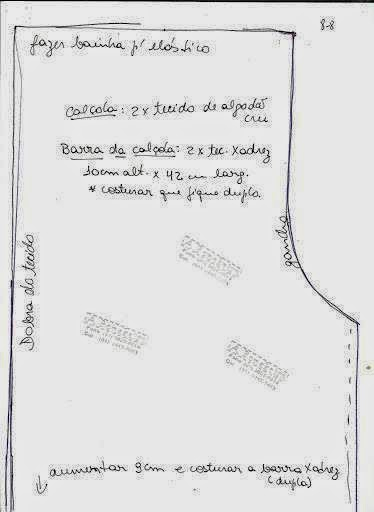 8-8
fazer bainha p/ elástico
calçola: 2 x tecido de algodão
cru
Barra da calçola: 2 x tec. xadrez
10cm alt. x 42 cm larg.
* costurar que fique dupla.
gancho
Dobra do tecido
↓ aumentar 9cm e costurar a barra xadrez
(dupla)